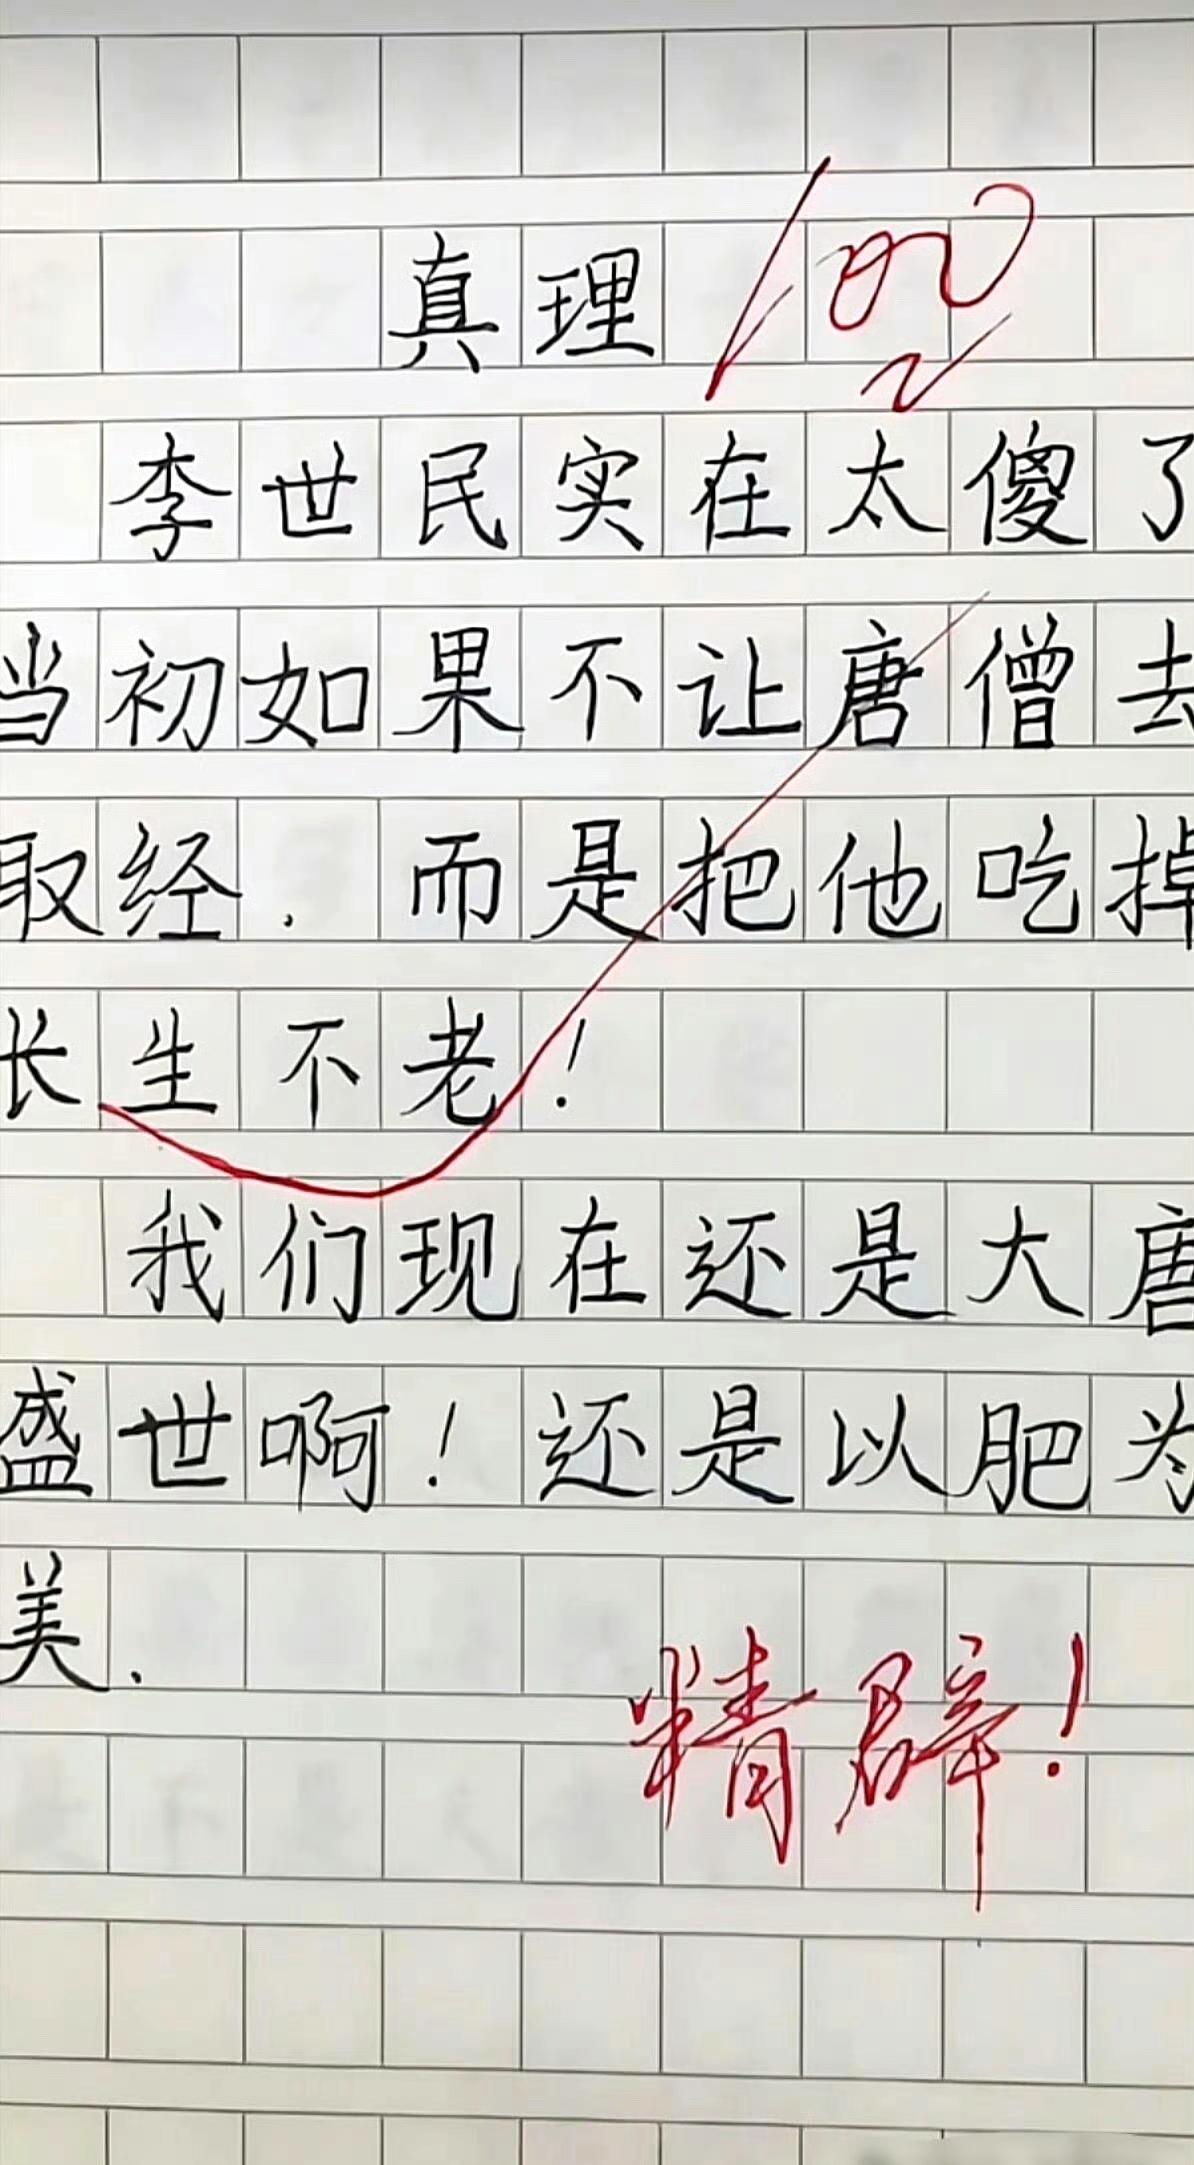 真理 100
李世民实在太傻了
当初如果不让唐僧去
取经.而是把他吃掉
长生不老!
我们现在还是大唐
盛世啊!还是以肥为
美.
精辟!